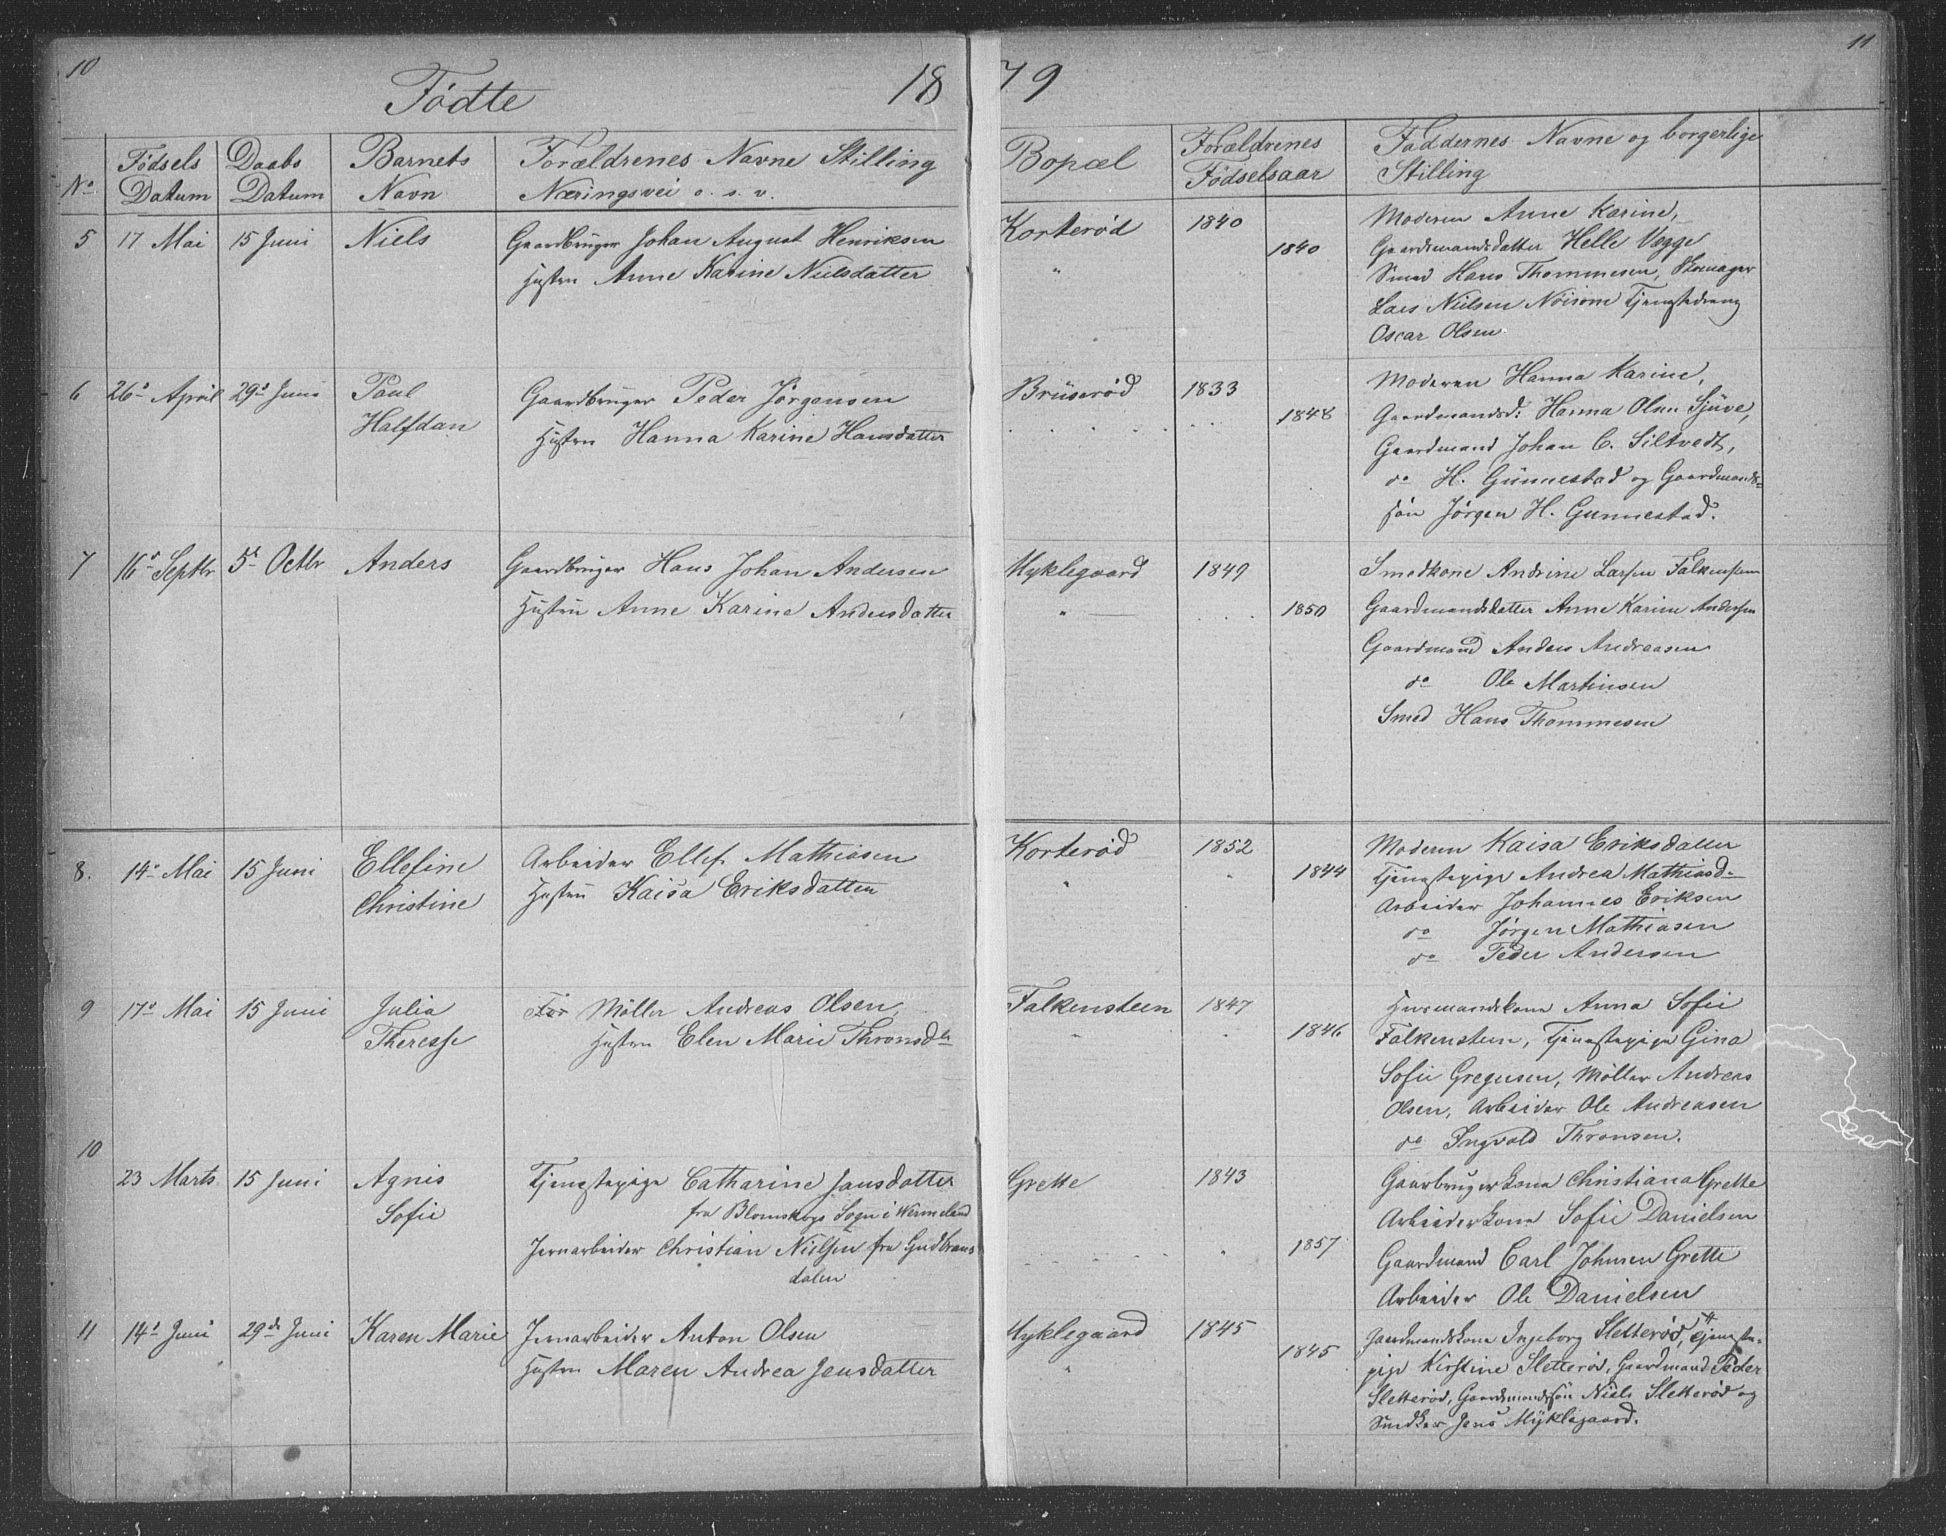 10
11
Fødte 1879
No
Fødsels Datum
Daabs Datum
Barnets Navn
Forældrenes Navne Stilling
Næringsvei o. s. v.
Bopæl
Forældrenes Fødselsaar
Faddernes Navne og borgerlige
Stilling
5 17 Mai 15 Juni Niels Gaardbruger Johan August Henriksen Korterød 1840 Moderen Anne Karine,
Hustru Anne Karine Nielsdatter " 1840 Gaardmandsdatter Helle Vegge
Smed Hans Thommesen, Skomager
Lars Nielsen Tjenestedreng
Oscar Olsen
6 26de April 29de Juni Paul Gaardbruger Peder Jørgensen Brüserød 1833 Moderen Hanna Karine,
Halfdan Hustru Hanna Karine Hansdatter 1848 Gaardmandsd: Hanna Olsen Sjüve,
Gaardmand Johan C. Siltvedt,
do H. Gunnestad og Gaardmands-
søn Jørgen H. Gunnestad.
7 16de Septbr 5te Octbr Anders Gaardbruger Hans Johan Andersen Myklegaard 1849 Smedkone Andrine Larsen Falkensteen
Hustru Anne Karine Andersdatter " 1850 Gaardmandsdatter Anne Karine Andersen
Gaardmand Anders Andreasen
do Ole Martinsen
Smed Hans Thommesen
8. 14de Mai 15 Juni Ellefine Arbeider Ellef Mathiasen Korterød 1852 Moderen Kaisa Eriksdatter
Christine Hustru Kaisa Eriksdatter " 1844 Tjenestepige Andrea Mathiasd.
Arbeider Johannes Eriksen
do Jørgen Mathiasen
do Peder Andersen
9 17de Mai 15 Juni Julia Møller Andreas Olsen, Falkensteen 1847 Husmandskone Anna Sofie
Therese Hustru Elen Marie Thronsdtr " 1846 Falkensteen, Tjenestepige Gina
Sofie Gregersen, Møller Andreas
Olsen, Arbeider Ole Andreasen
do Ingvald Thronsen.
10 23 Marts 15 Juni Agnis Tjenestepige Catharine Jansdatter Grette 1843 Gaarbrugerkone Christiana Grette
Sofie fra Blomskogs Sogn i Wermeland Arbeiderkone Sofie Danielsen
Jernarbeider Christian Nielsen fra Gudbrans " 1857 Gaardmand Carl Johnsen Grette
dalen Arbeider Ole Danielsen
11 14de Juni 29de Juni Karen Marie Jernarbeider Anton Olsen Myklegaard 1845 Gaardmandskone Ingeborg Sletterød, Tjeneste-
Hustru Maren Andrea Jensdatter " 1845 pige Kirstine Sletterød, Gaardmand Peder
Sletterød, Gaardmandssøn Niels Sletterød og
Snedker Jens Myklegaard.